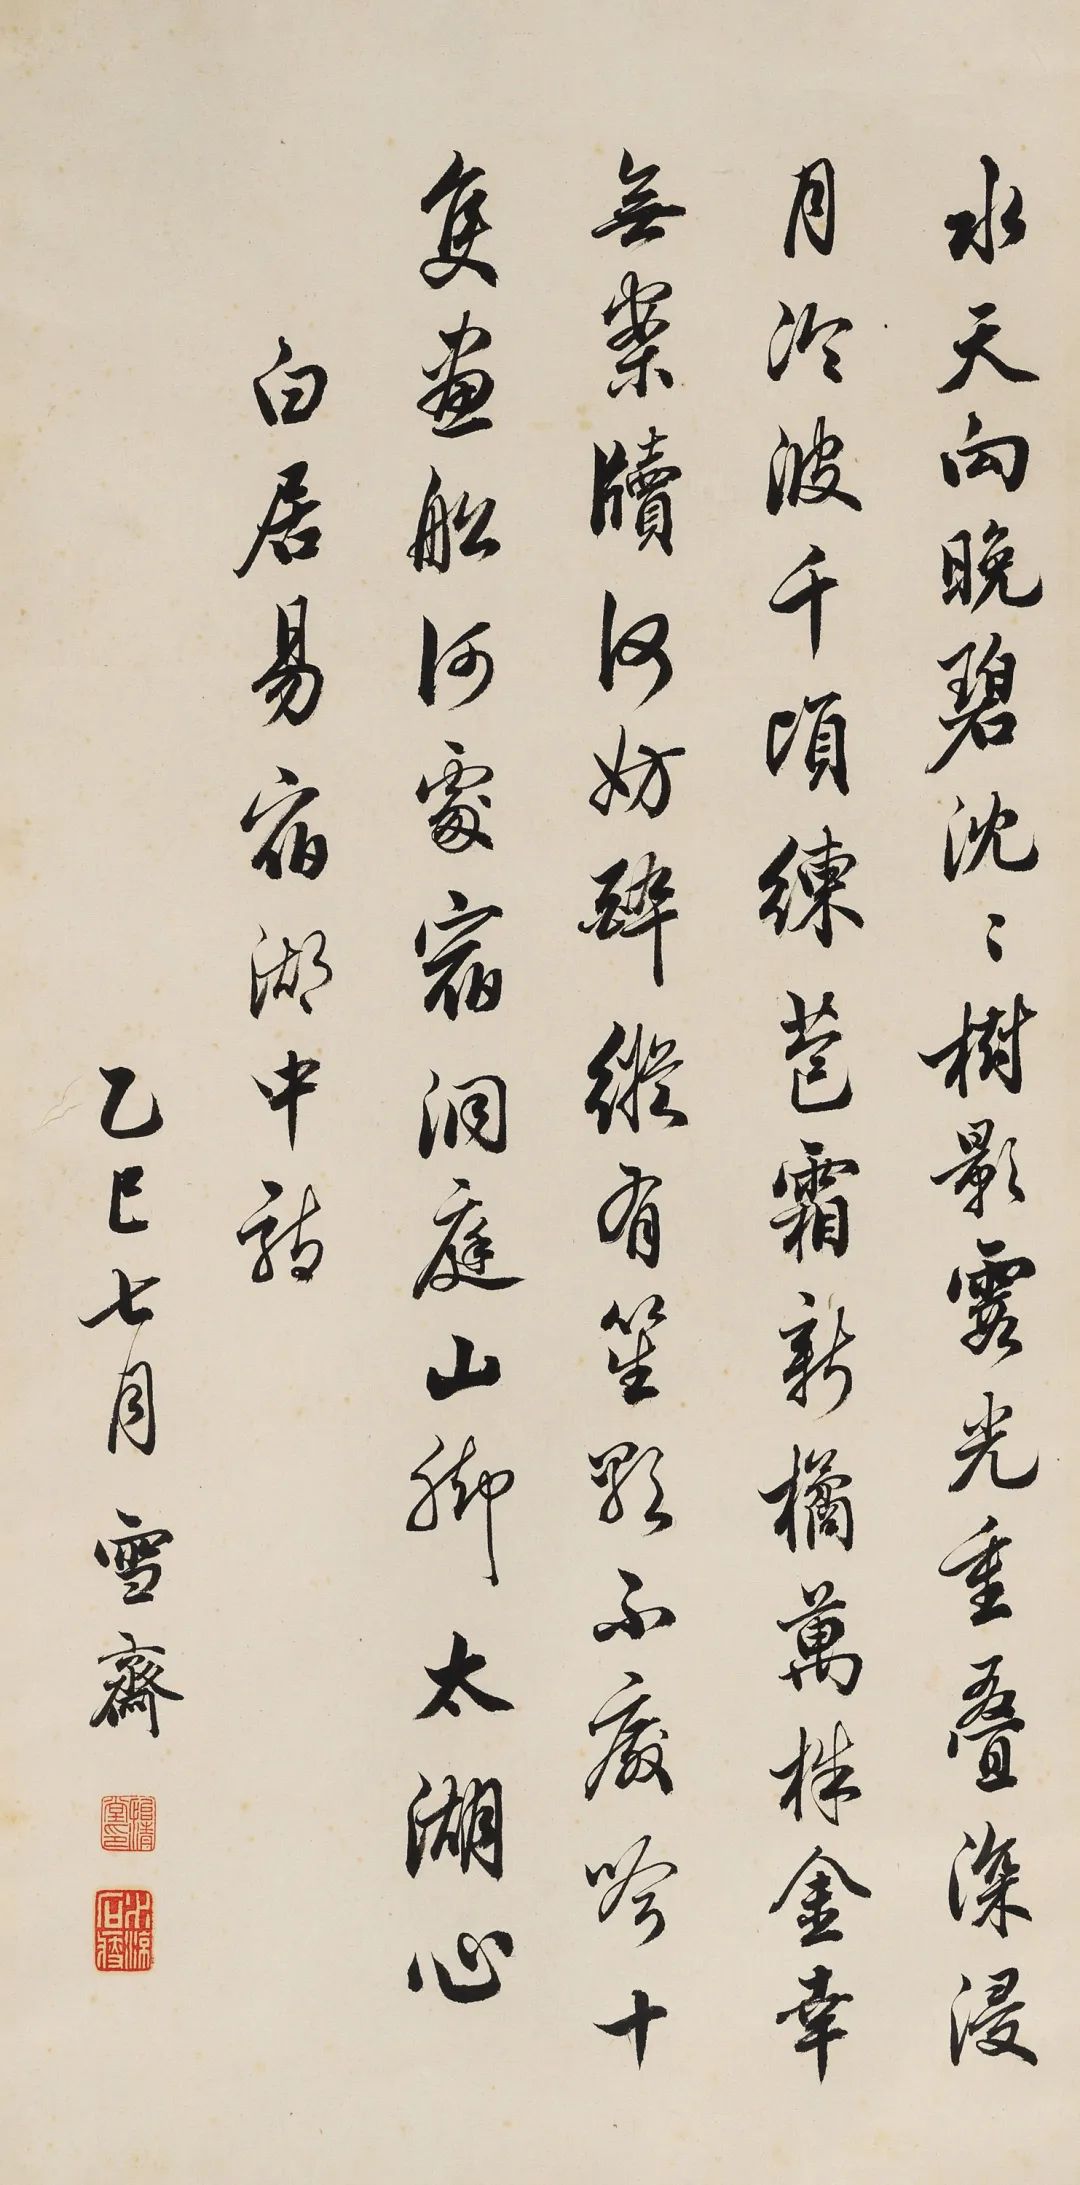 水天向晚碧沈〻樹影霞光重叠深浸
月冷波千頃練苞霜新橘萬株金幸
無案牘何妨醉縱有笙歌不廢吟十
隻畫船何處宿洞庭山脚太湖心
白居易宿湖中詩
乙巳七月 雪齋